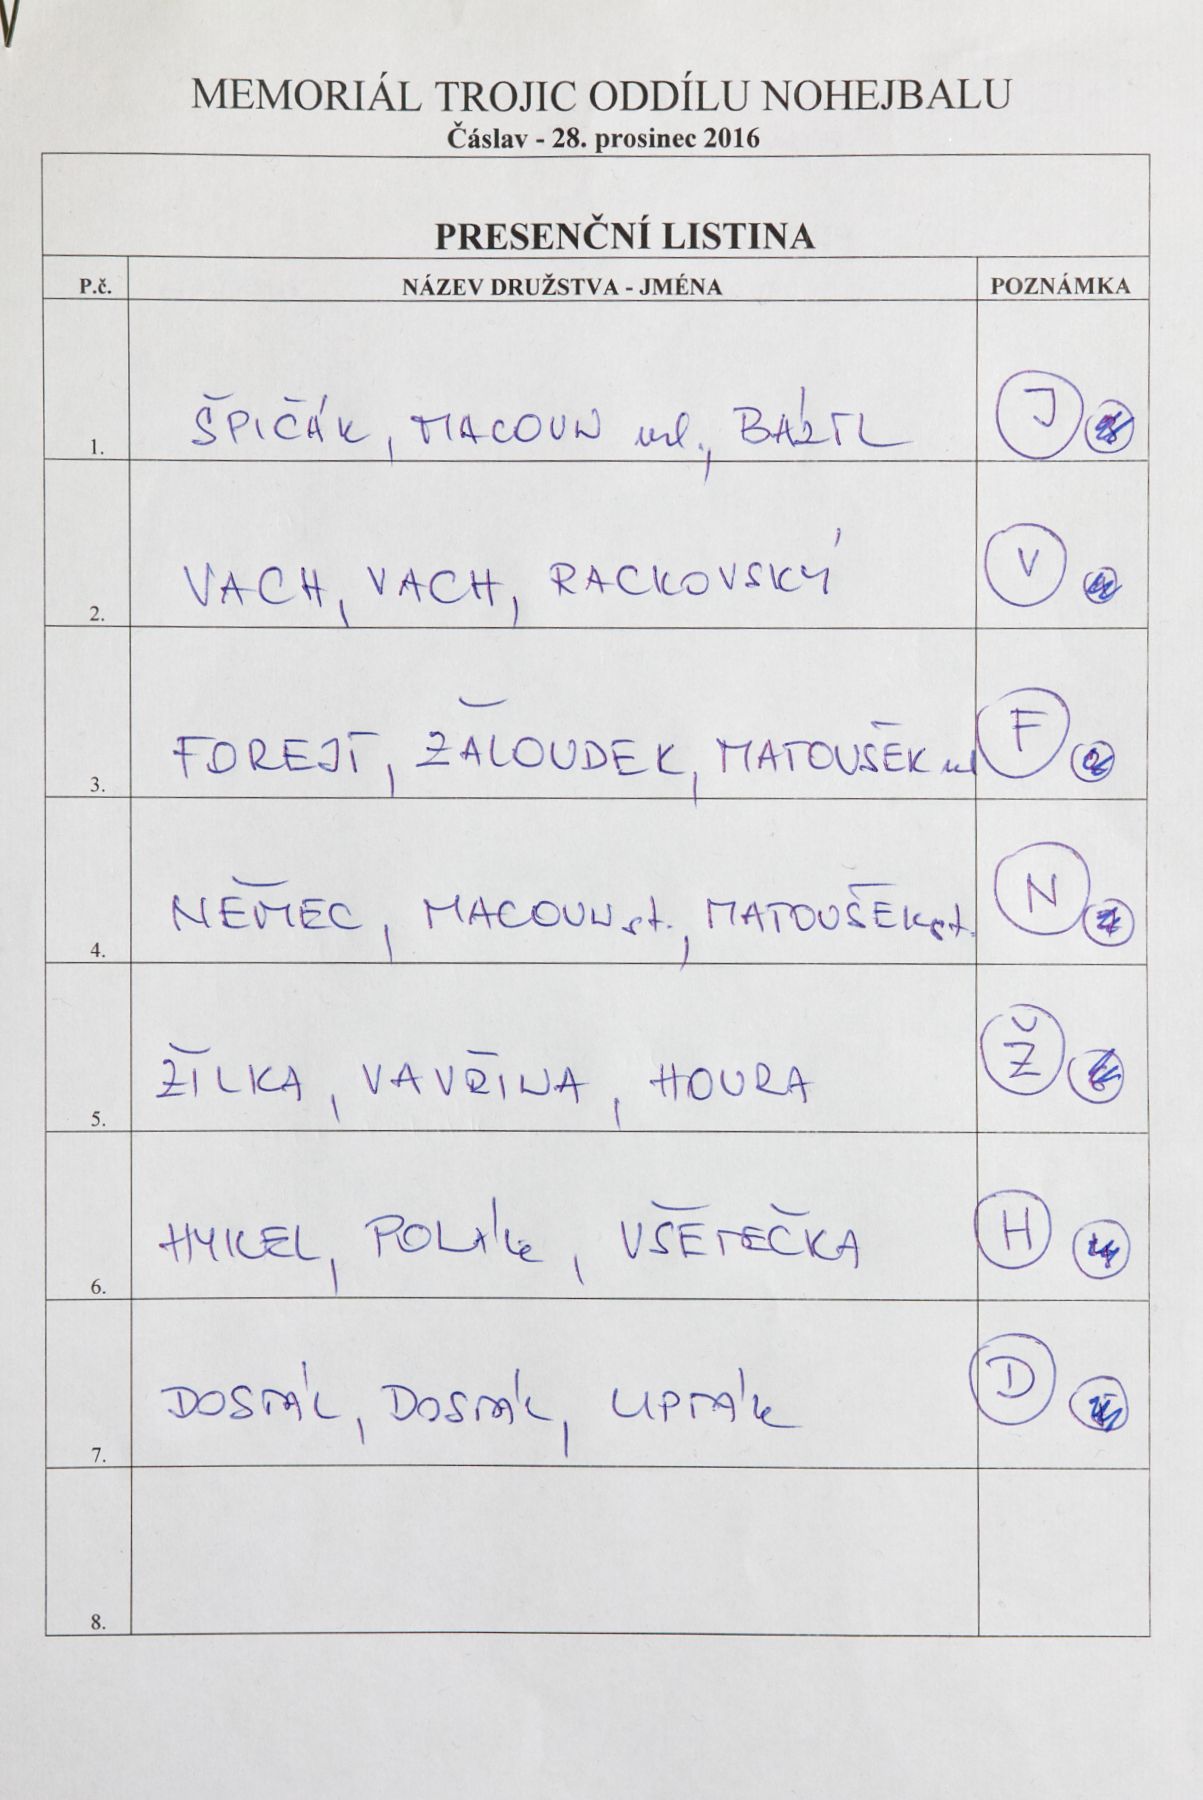 MEMORIÁL TROJIC ODDÍLU NOHEJBALU
Čáslav - 28. prosinec 2016
PRESENČNÍ LISTINA
P.č. NÁZEV DRUŽSTVA - JMÉNA POZNÁMKA
1. ŠPIČÁK, MACOUN ml., BÁRTL J
2. VACH, VACH, RACKOVSKÝ V
3. FOREJT, ŽALOUDEK, MATOUŠEK ml F
4. NĚMEC, MACOUN st., MATOUŠEK st. N
5. ŽILKA, VAVŘINA, HOURA Ž
6. HYKEL, POLÁK, VŠETEČKA H
7. DOSTÁL, DOSTÁL, LIPTÁK D
8.